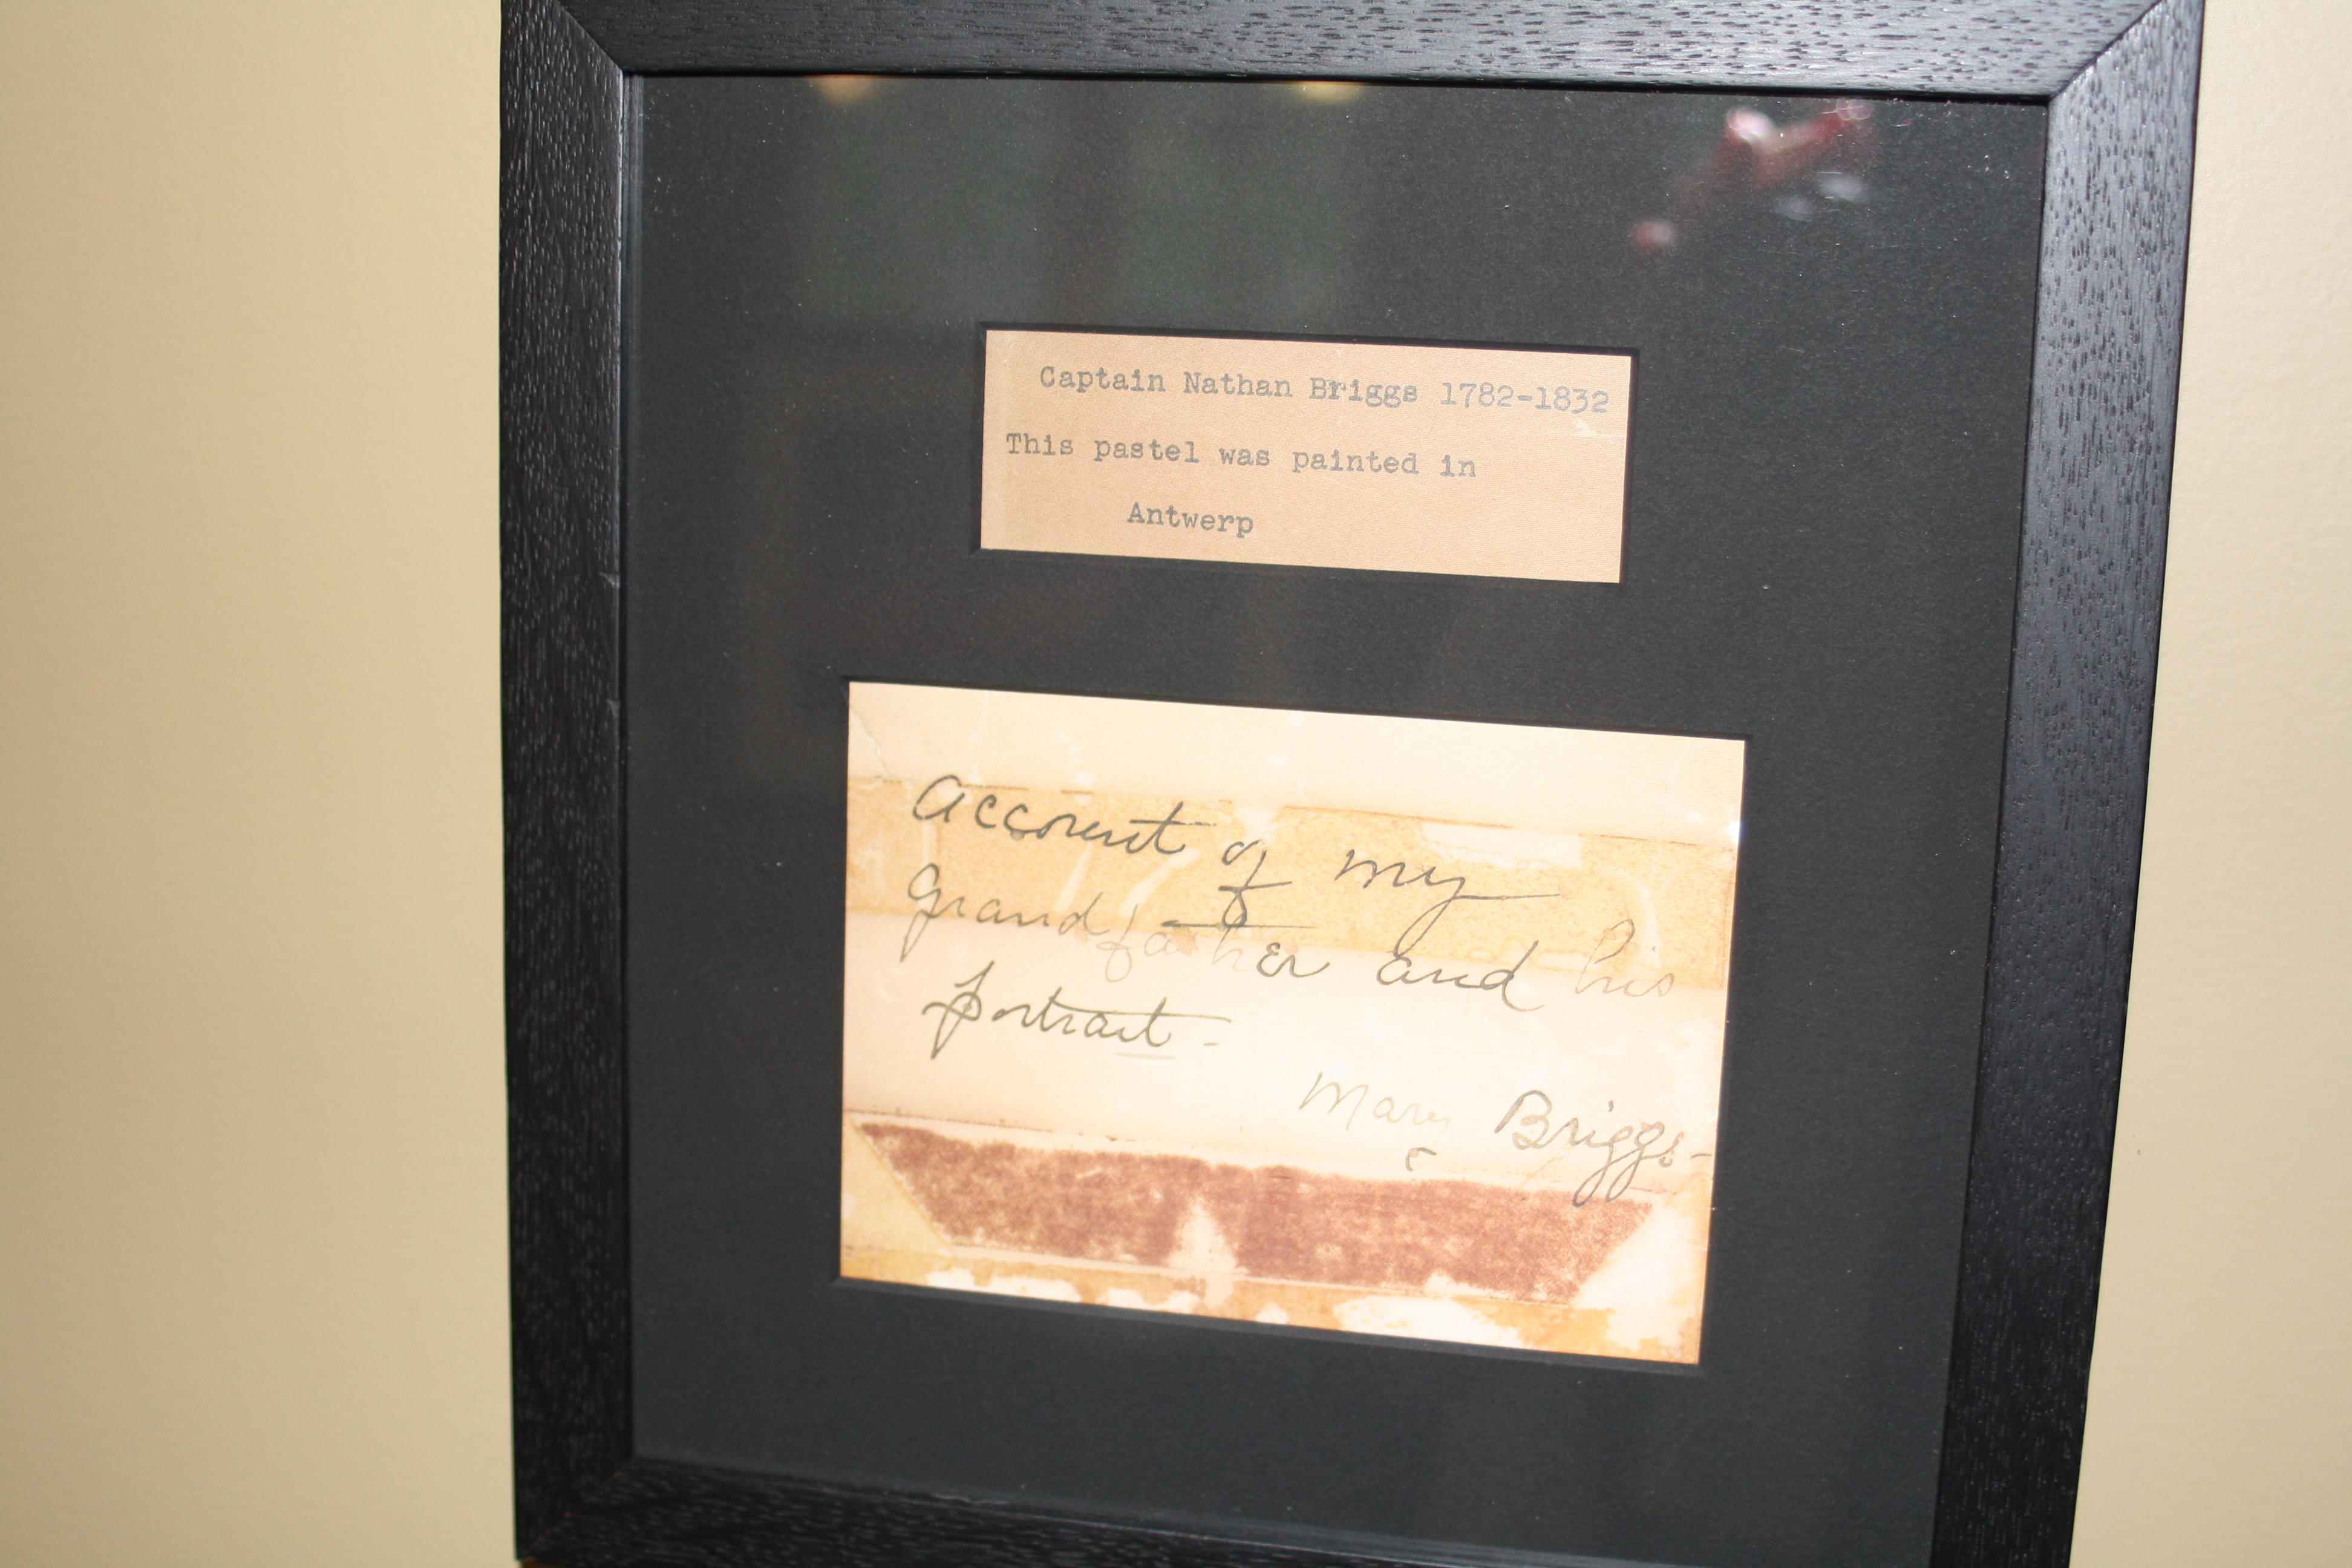 Captain Nathan Briggs 1782-1832
This pastel was painted in
Antwerp
Account of my
Grandfather and his
portrait-
Mary Briggs-